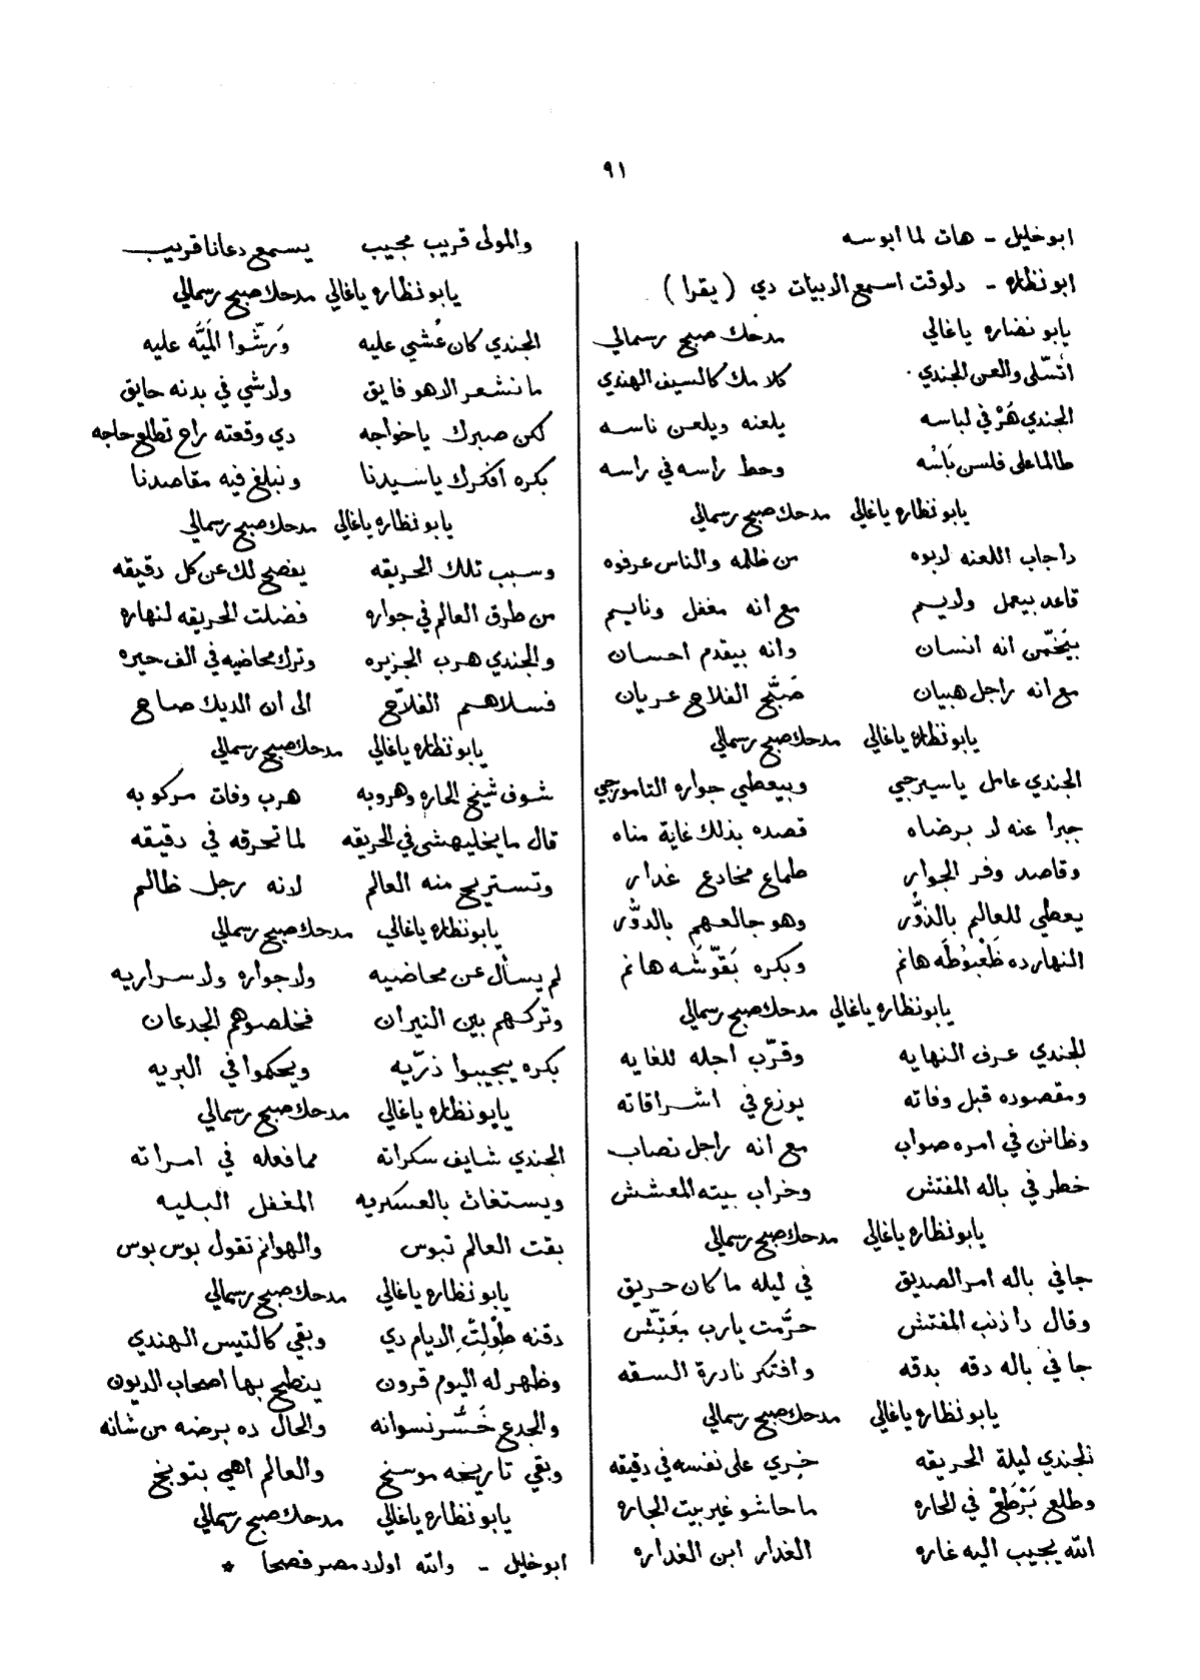 ٩١
ابو خليل - هات لما ابوسه
ابو نظاره - دلوقت اسمع الابيات دي (يقرا)
يابو نضاره ياغالي مدحك صبح رسمالي
اتسّلى والعن الجندي كلامك كالسيف الهندي
الجندي هَزْ في لباسه يلعنه ويلعن ناسه
طالما على فلسن بَاسْه وحط راسه في راسه
يابو نظاره ياغالي مدحك صبح رسمالي
دا جاب اللعنه لابوه من ظلمه والناس عرفوه
قاعد بيعمل ولايسم مع انه مغفل ونايم
بيَخمّن انه انسان وانه بيقدم احسان
مع انه راجل هبيان صَبَّح الفلاح عريان
يابو نظاره ياغالي مدحك صبح رسمالي
الجندي عامل ياسيرجي وبيعطي جواره التامورجي
جبرا عنه لا برضاه قصده بذلك غاية مناه
وقاصد وفر الجوار طماع مخادع غدار
يعطي للعالم بالدوُّر وهو جالعهم بالدوُّر
النهارده ظَعْبُوطَه هانم وبكره بَقّوشَه هانم
يابو نظاره ياغالي مدحك صبح رسمالي
الجندي عرف النهايه وقرّب اجله للغايه
ومقصوده قبل وفاته يوزع في اشراقاته
وظانن في امره صواب مع انه راجل نصاب
خطر في باله المفتش وخراب بيته المعشش
يابو نظاره ياغالي مدحك صبح رسمالي
جا في باله امر الصديق في ليله ما كان حريق
وقال دا ذنب المفتش حرُّمت يارب مَعَتِّش
جا في باله دقه بدقه وافتكر نادرة السقه
يابو نظاره ياغالي مدحك صبح رسمالي
الجندي ليلة الحريقه خِري على نفسه في دقيقه
وطلع بَرْطَعْ في الحاره ما حاشو غير بيت الجاره
الله يجيب اليه غاره الغدار ابن الغداره
والمولى قريب مجيب يسمع دعانا قريب
يابو نظاره ياغالي مدحك صبح رسمالي
الجندي كان غُشي عليه وَرَشّوا المَيَّه عليه
ما نشعر الا هو فايق ولا شي في بدنه حايق
لكن صبرك ياخواجه دي وقعته راح تطلع حاجه
بكره افكرك ياسيدنا ونبلغ فيه مقاصدنا
يابو نظاره ياغالي مدحك صبح رسمالي
وسبب تلك الحريقه يفصح لك عن كل دقيقه
من طرق العالم في جواره فضلت الحريقه لنهاره
والجندي هرب الجزيره وترك محاضيه في الف حيره
فسلاهم الفلاّح الى ان الديك صاح
يابو نظاره ياغالي مدحك صبح رسمالي
شوف شيخ الحاره وهروبه هرب وفات مركوبه
قال ما يخليهشي في الحريقه لما تحرقه في دقيقه
وتستريح منه العالم لانه رجل ظالم
يابو نظاره ياغالي مدحك صبح رسمالي
لم يسأل عن محاضيه ولا جواره ولا سراريه
وتركهم بين النيران فخلصوهم الجدعان
بكره يجيبوا ذرّيه ويحكموا في البريه
يابو نظاره ياغالي مدحك صبح رسمالي
الجندي شايف سكراته مما فعله في امراته
ويستغاث بالعسكريه المغفل البليه
بقت العالم تبوس والهوانم تقول بوس بوس
يابو نظاره ياغالي مدحك صبح رسمالي
دقنه طِوْلِتْ الايام دي وبقي كالتيس الهندي
وظهر له اليوم قرون ينطح بها اصحاب الديون
والجدع خَسَّر نسوانه والحال ده برضه من شانه
وبقي تاريخه موسخ والعالم اهي بتوبخ
يابو نظاره ياغالي مدحك صبح رسمالي
ابو خليل - والله اولاد مصر فصحا *